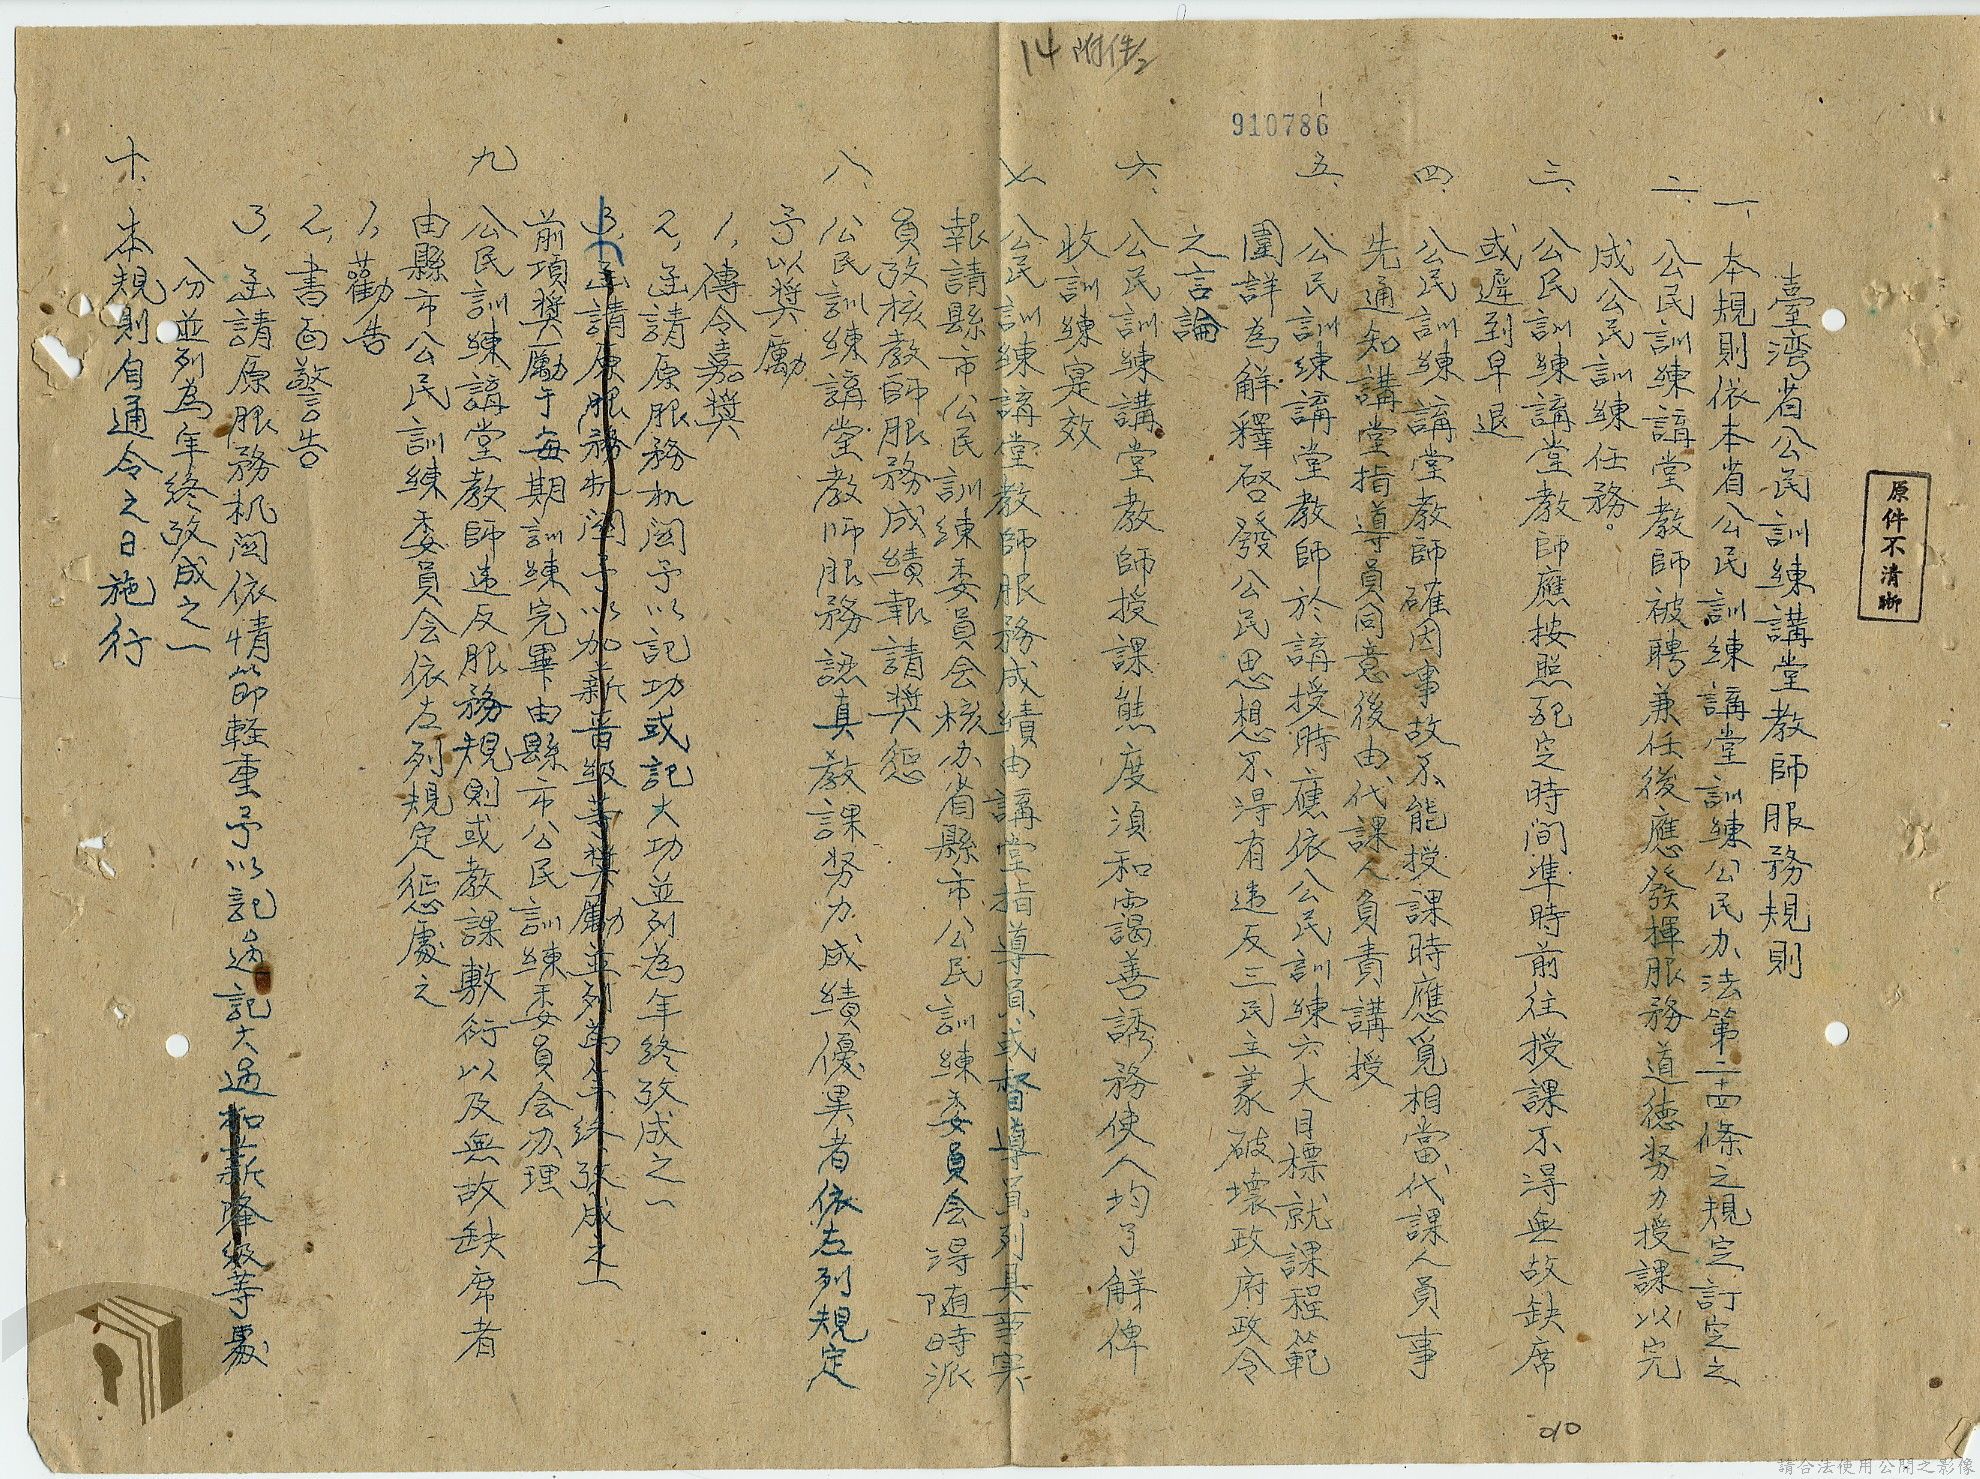 14 附件2
910786
原件不清晰
臺湾省公民訓練講堂教師服務規則
一、本規則依本省公民訓練講堂訓練公民办法第二十四條之規定訂定之
二、公民訓練講堂教師被聘兼任後應發揮服務道德努力授課以完
成公民訓練任務。
三、公民訓練講堂教師應按照配定時间準時前往授課不得無故缺席
或遲到早退
四、公民訓練講堂教師確因事故不能授課時應覓相當代課人員事
先通知講堂指導員同意後由代課人負責講授
五、公民訓練講堂教師於講授時應依公民訓練六大目標就課程範
圍詳為解釋啓發公民思想不得有違反三民主義破壞政府政令
之言論
六、公民訓練講堂教師授課態度須和靄善誘務使人均了解俾
收訓練寔效
七、公民訓練講堂教師服務成績由講堂指導員或督導員列具事实
報請縣市公民訓練委員会核办省縣市公民訓練委員会得随時派
員攷核教師服務成績報請獎懲
八、公民訓練講堂教师服務認真教課努力成績優異者依左列規定
予以獎勵
1、傳令嘉獎
2、函請原服務机関予以記功或記大功並列為年終攷成之一
3、函請原服務机関予以加薪晋級等獎勵並列為年終攷成之一
前項獎勵于每期訓練完畢由縣市公民訓練委員会办理
九 公民訓練講堂教師違反服務規則或教課敷衍以及無故缺席者
由縣市公民訓練委員会依左列規定懲處之
1、勸告
2、書面警告
3、函請原服務机関依情節輕重予以記过記大過和薪降級等處
份並列為年終攷成之一
十、本規則自通令之日施行
010
請合法使用公開之影像